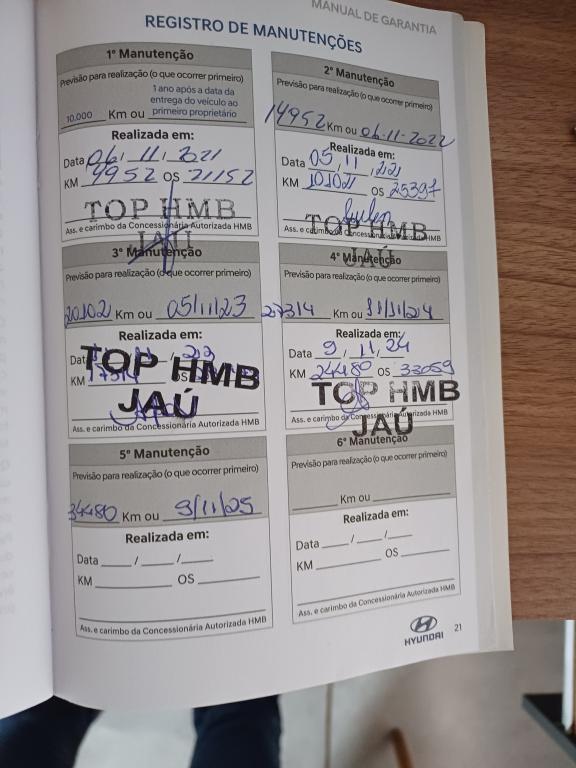 MANUAL DE GARANTIA
REGISTRO DE MANUTENÇÕES
1ª Manutenção
Previsão para realização (o que ocorrer primeiro)
10.000 Km ou 1 ano após a data da
entrega do veículo ao
primeiro proprietário
Realizada em:
Data 06, 11, 2021
KM 9952 OS 21152
TOP HMB
JAÚ
Ass. e carimbo da Concessionária Autorizada HMB
2ª Manutenção
Previsão para realização (o que ocorrer primeiro)
14952 Km ou 06-11-2022
Realizada em:
Data 05, 11, 22
KM 10102 OS 25397
TOP HMB
JAÚ
Ass. e carimbo da Concessionária Autorizada HMB
3ª Manutenção
Previsão para realização (o que ocorrer primeiro)
20102 Km ou 05/11/23
Realizada em:
Data
KM 17314 OS
TOP HMB
JAÚ
Ass. e carimbo da Concessionária Autorizada HMB
4ª Manutenção
Previsão para realização (o que ocorrer primeiro)
27314 Km ou 11/11/24
Realizada em:
Data 9, 11, 24
KM 24480 OS 33059
TOP HMB
JAÚ
Ass. e carimbo da Concessionária Autorizada HMB
5ª Manutenção
Previsão para realização (o que ocorrer primeiro)
34480 Km ou 9/11/25
Realizada em:
Data ____ / ____ / ____
KM ____ OS ____
Ass. e carimbo da Concessionária Autorizada HMB
6ª Manutenção
Previsão para realização (o que ocorrer primeiro)
____ Km ou ____
Realizada em:
Data ____ / ____ / ____
KM ____ OS ____
Ass. e carimbo da Concessionária Autorizada HMB
HYUNDAI
21